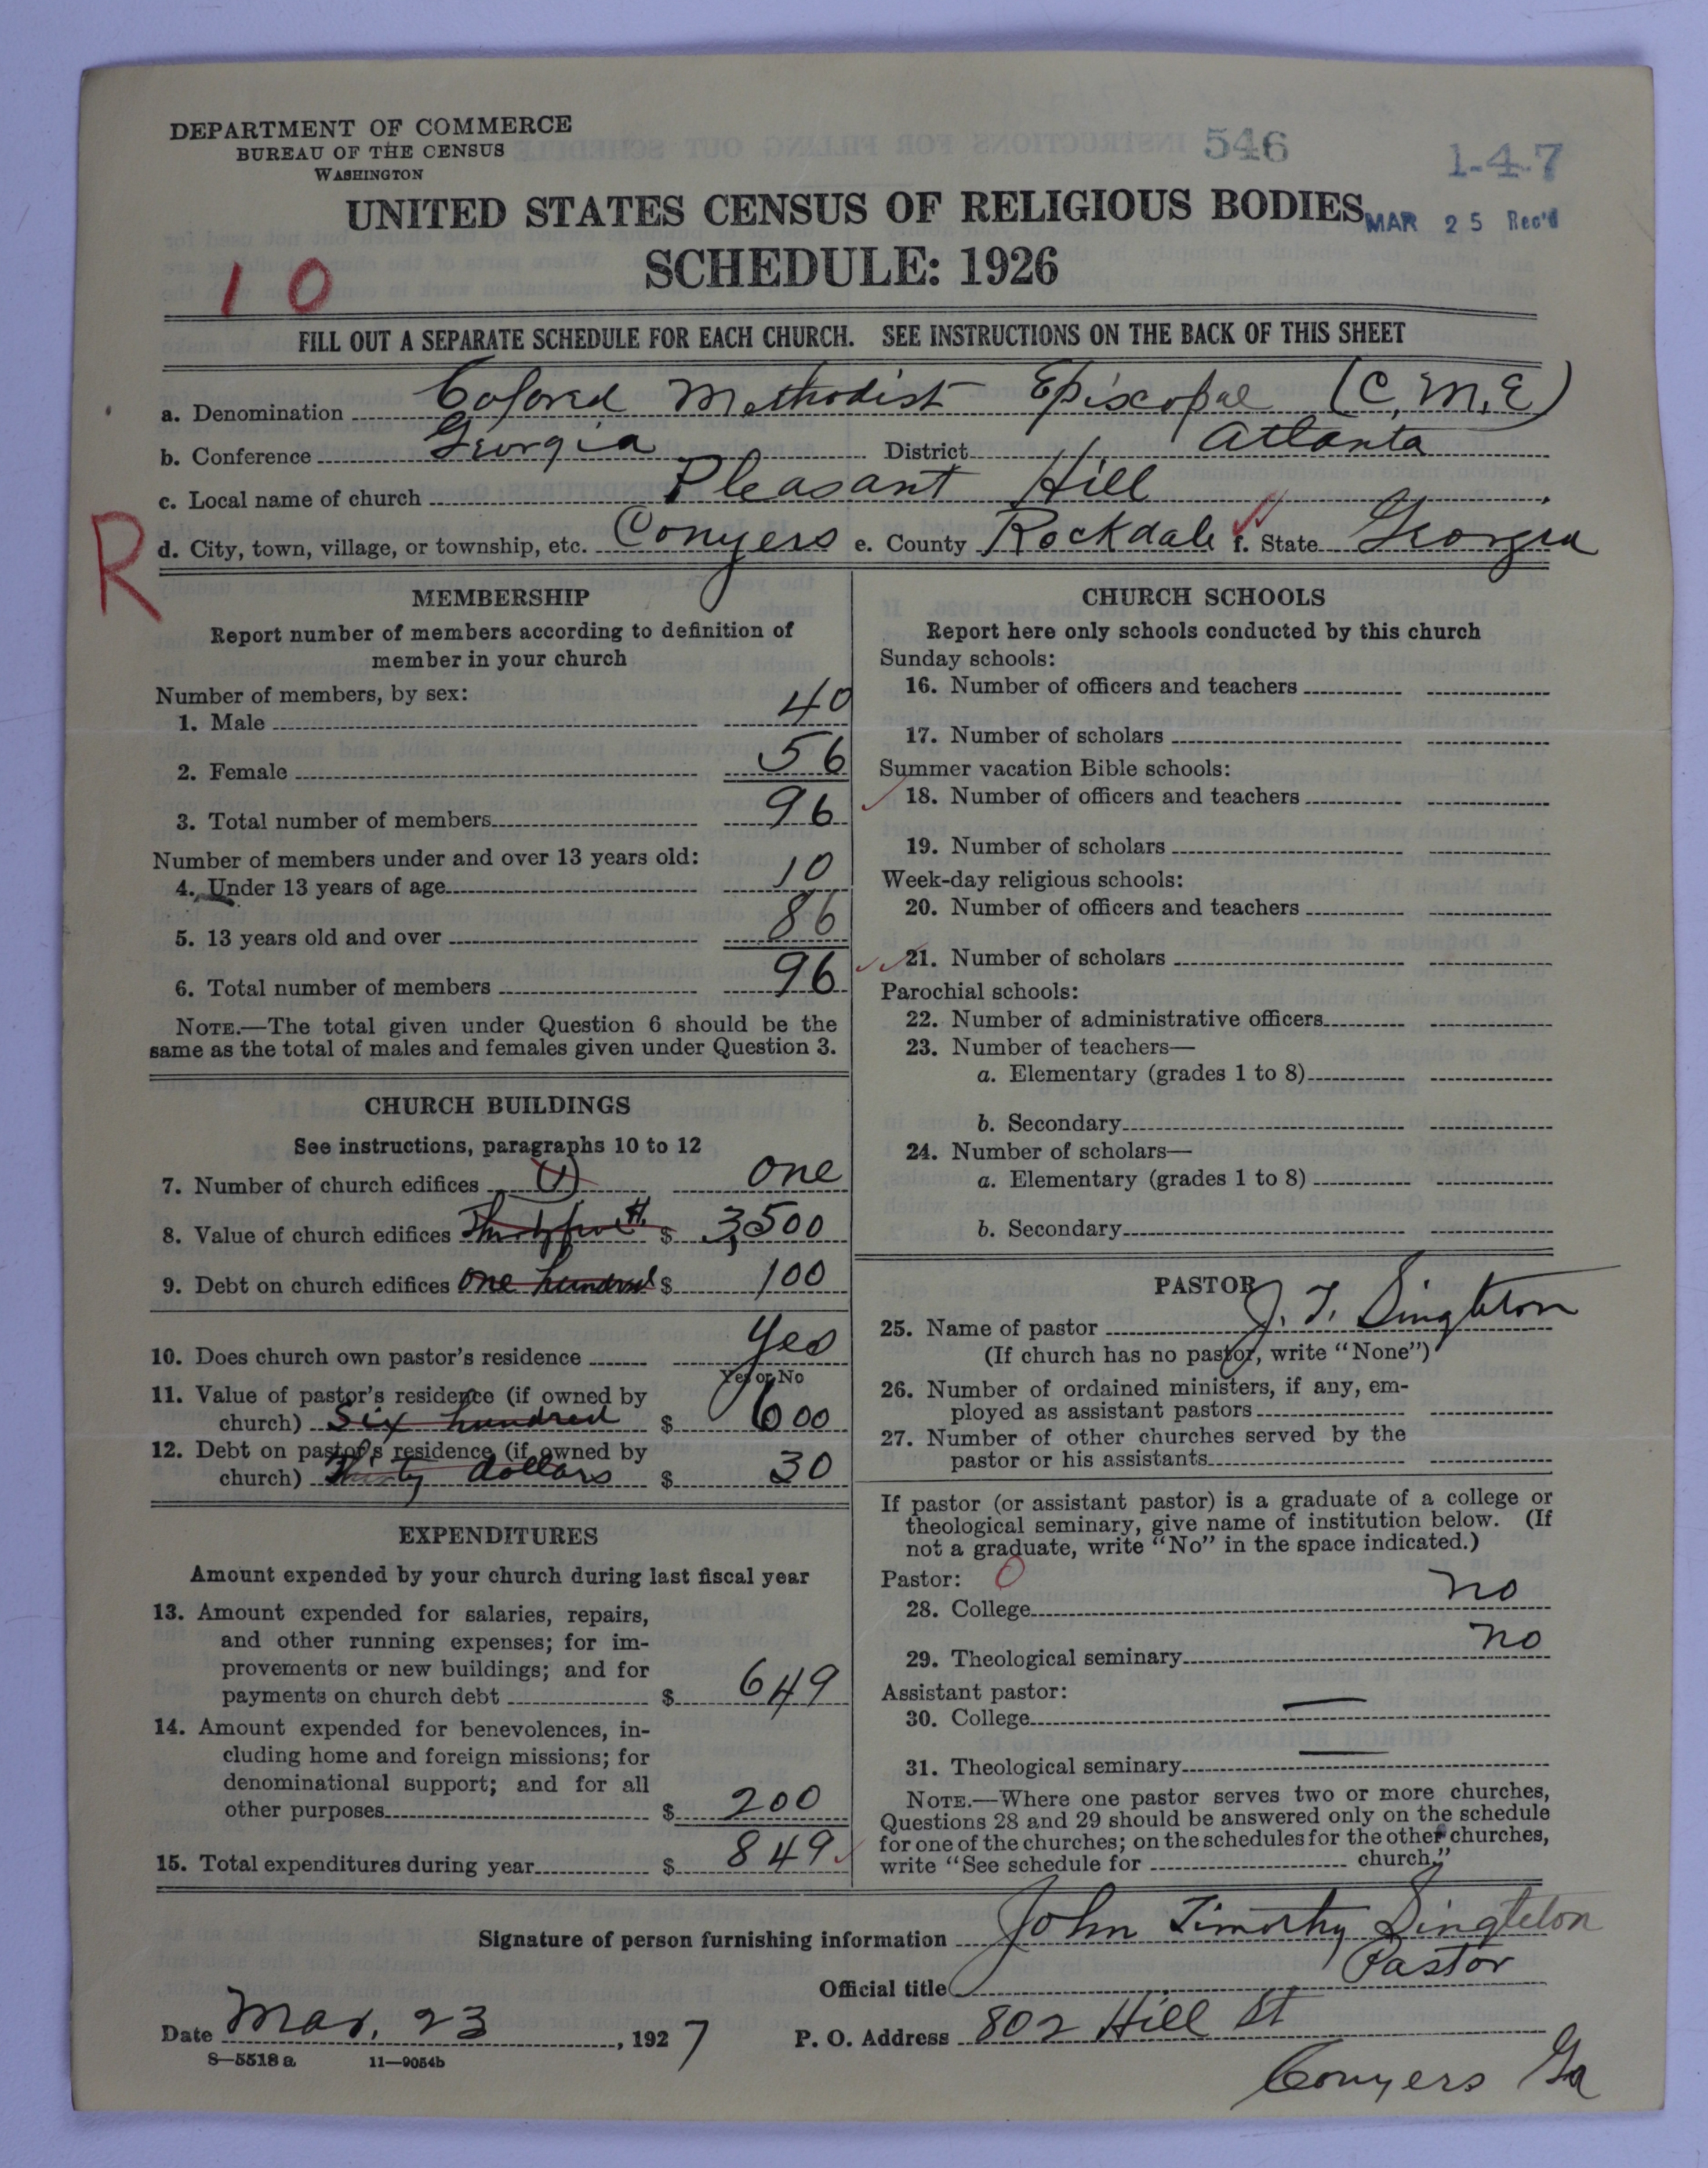 DEPARTMENT OF COMMERCE
BUREAU OF THE CENSUS
WASHINGTON
546
1-4-7
UNITED STATES CENSUS OF RELIGIOUS BODIES
MAR 25 Rec'd
SCHEDULE: 1926
10
FILL OUT A SEPARATE SCHEDULE FOR EACH CHURCH. SEE INSTRUCTIONS ON THE BACK OF THIS SHEET
a. Denomination Colored Methodist Episcopal (C.M.E)
b. Conference Georgia District Atlanta
c. Local name of church Pleasant Hill
R
d. City, town, village, or township, etc. Conyers e. County Rockdale f. State Georgia
MEMBERSHIP
Report number of members according to definition of
member in your church
Number of members, by sex:
1. Male 40
2. Female 56
3. Total number of members 96
Number of members under and over 13 years old:
4. Under 13 years of age 10
5. 13 years old and over 86
6. Total number of members 96
NOTE.—The total given under Question 6 should be the
same as the total of males and females given under Question 3.
CHURCH BUILDINGS
See instructions, paragraphs 10 to 12
7. Number of church edifices (1) one
8. Value of church edifices $ 3,500
9. Debt on church edifices One hundred $ 100
10. Does church own pastor's residence Yes
Yes or No
11. Value of pastor's residence (if owned by
church) Six hundred $ 600
12. Debt on pastor's residence (if owned by
church) Thirty dollars $ 30
EXPENDITURES
Amount expended by your church during last fiscal year
13. Amount expended for salaries, repairs,
and other running expenses; for im-
provements or new buildings; and for
payments on church debt $ 649
14. Amount expended for benevolences, in-
cluding home and foreign missions; for
denominational support; and for all
other purposes $ 200
15. Total expenditures during year $ 849
CHURCH SCHOOLS
Report here only schools conducted by this church
Sunday schools:
16. Number of officers and teachers
17. Number of scholars
Summer vacation Bible schools:
18. Number of officers and teachers
19. Number of scholars
Week-day religious schools:
20. Number of officers and teachers
21. Number of scholars
Parochial schools:
22. Number of administrative officers
23. Number of teachers—
a. Elementary (grades 1 to 8)
b. Secondary
24. Number of scholars—
a. Elementary (grades 1 to 8)
b. Secondary
PASTOR
25. Name of pastor J. T. Singleton
(If church has no pastor, write "None")
26. Number of ordained ministers, if any, em-
ployed as assistant pastors
27. Number of other churches served by the
pastor or his assistants
If pastor (or assistant pastor) is a graduate of a college or
theological seminary, give name of institution below. (If
not a graduate, write "No" in the space indicated.)
Pastor: 0
28. College no
29. Theological seminary no
Assistant pastor:
30. College —
31. Theological seminary —
NOTE.—Where one pastor serves two or more churches,
Questions 28 and 29 should be answered only on the schedule
for one of the churches; on the schedules for the other churches,
write "See schedule for church."
Signature of person furnishing information John Timothy Singleton
Official title Pastor
Date Mar. 23, 1927 P. O. Address 802 Hill St
8—5518 a 11—9054b
Conyers Ga